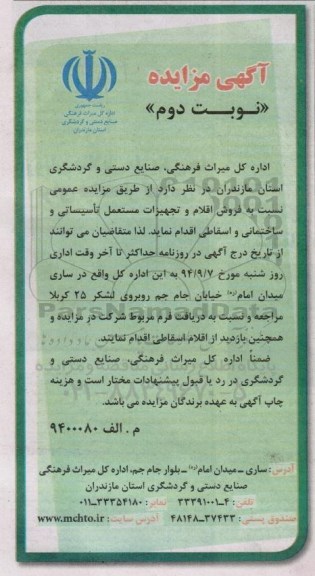 آگهی مزایده
«نوبت دوم»
ریاست جمهوری
اداره کل میراث فرهنگی
صنایع دستی و گردشگری
استان مازندران
اداره کل میراث فرهنگی، صنایع دستی و گردشگری
استان مازندران در نظر دارد از طریق مزایده عمومی
نسبت به فروش اقلام و تجهیزات مستعمل تأسیساتی و
ساختمانی و اسقاطی اقدام نماید. لذا متقاضیان می توانند
از تاریخ درج آگهی در روزنامه حداکثر تا آخر وقت اداری
روز شنبه مورخ ۹۴/۹/۷ به این اداره کل واقع در ساری
میدان امام(ره) خیابان جام جم روبروی لشکر ۲۵ کربلا
مراجعه و نسبت به دریافت فرم مربوط شرکت در مزایده و
همچنین بازدید از اقلام اسقاطی اقدام نمایند.
ضمناً اداره کل میراث فرهنگی، صنایع دستی و
گردشگری در رد یا قبول پیشنهادات مختار است و هزینه
چاپ آگهی به عهده برندگان مزایده می باشد.
م . الف ۹۴۰۰۰۸۰
آدرس: ساری ـ میدان امام(ره) ـ بلوار جام جم، اداره کل میراث فرهنگی
صنایع دستی و گردشگری استان مازندران
تلفن: ۴ـ۳۳۳۹۱۰۰۱ نمابر: ۳۳۳۵۴۱۸۰ـ۰۱۱
صندوق پستی: ۳۷۴۳۳ـ۴۸۱۴۸ آدرس سایت: www.mchto.ir